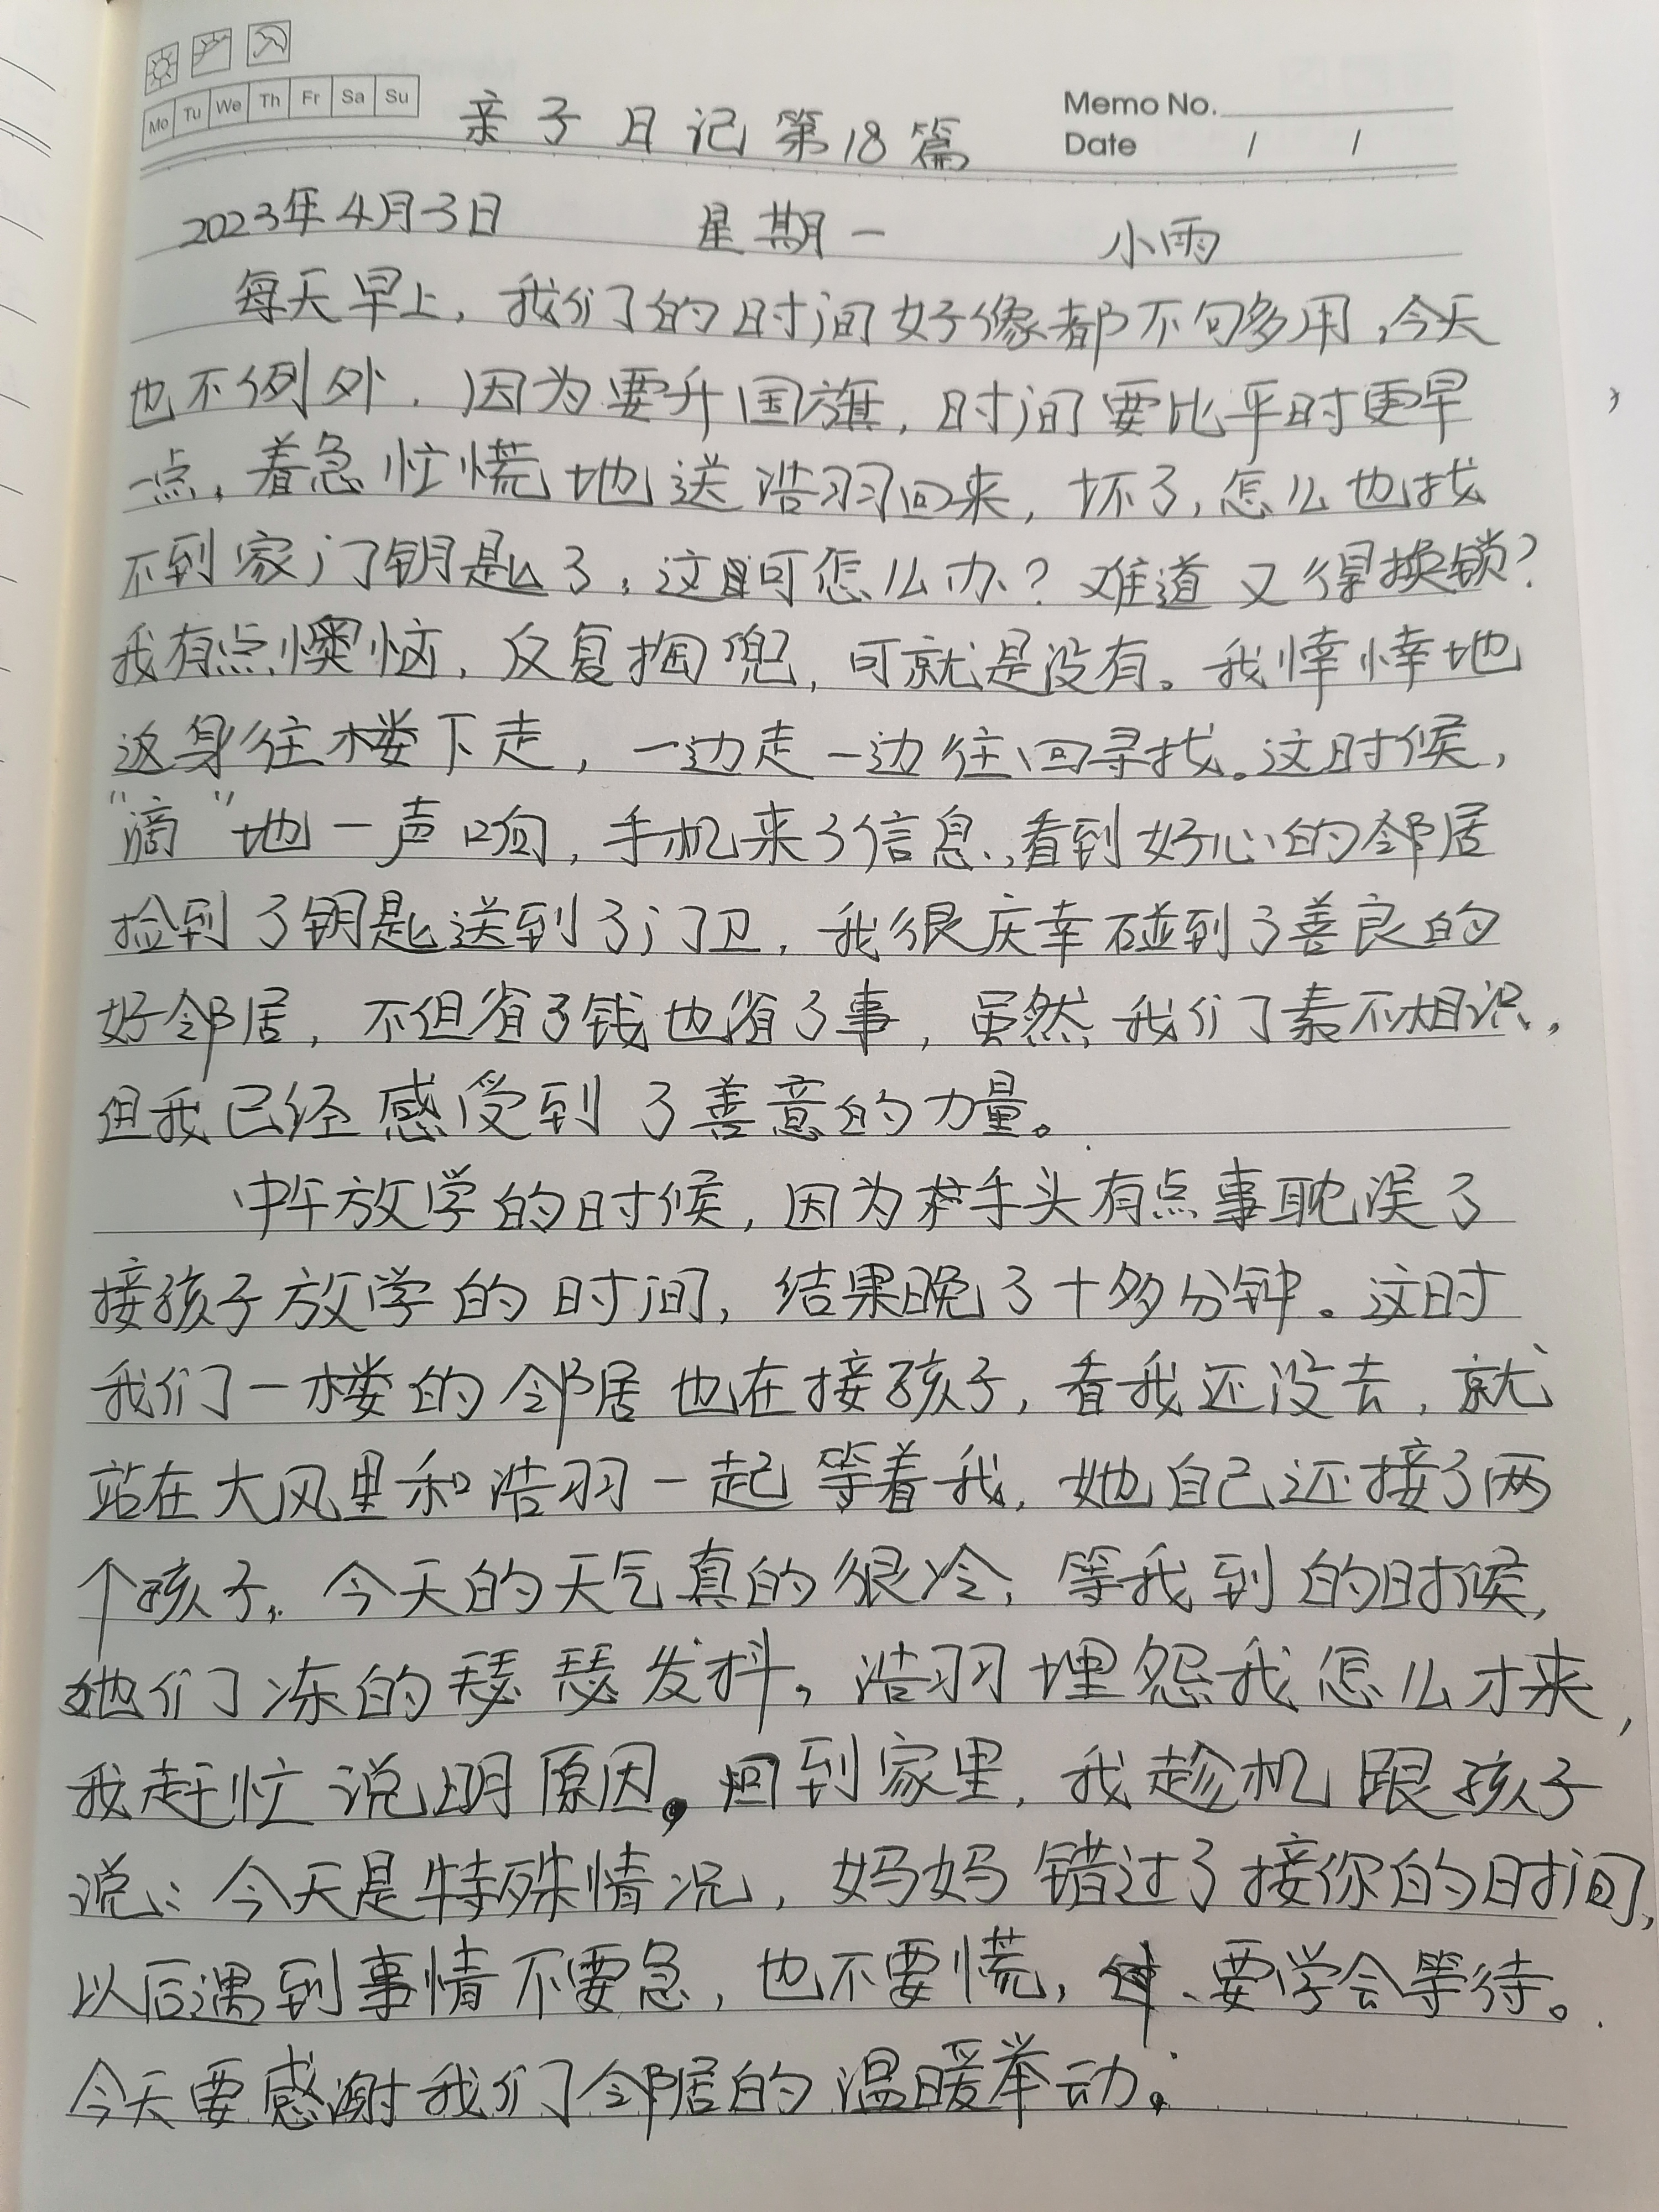 Mo Tu We Th Fr Sa Su
亲子日记第18篇
Memo No.
Date / /
2023年4月3日 星期一 小雨
每天早上,我们的时间好像都不够用,今天
也不例外.因为要升国旗,时间要比平时更早
一点,着急忙慌地送浩羽回来,坏了,怎么也找
不到家门钥匙了,这可怎么办?难道又得换锁?
我有点懊恼,反复掏兜,可就是没有。我悻悻地
返身往楼下走,一边走一边往回寻找。这时候,
"滴"地一声响,手机来了信息,看到好心的邻居
捡到了钥匙送到了门卫,我很庆幸碰到了善良的
好邻居,不但省了钱也省了事,虽然我们素不相识,
但我已经感受到了善意的力量。
中午放学的时候,因为手头有点事耽误了
接孩子放学的时间,结果晚了十多分钟。这时
我们一楼的邻居也在接孩子,看我还没去,就
站在大风里和浩羽一起等着我,她自己还接了两
个孩子,今天的天气真的很冷,等我到的时候,
她们冻的瑟瑟发抖,浩羽埋怨我怎么才来,
我赶忙说明原因。回到家里,我趁机跟孩子
说:今天是特殊情况,妈妈错过了接你的时间,
以后遇到事情不要急,也不要慌,要学会等待。
今天要感谢我们邻居的温暖举动。